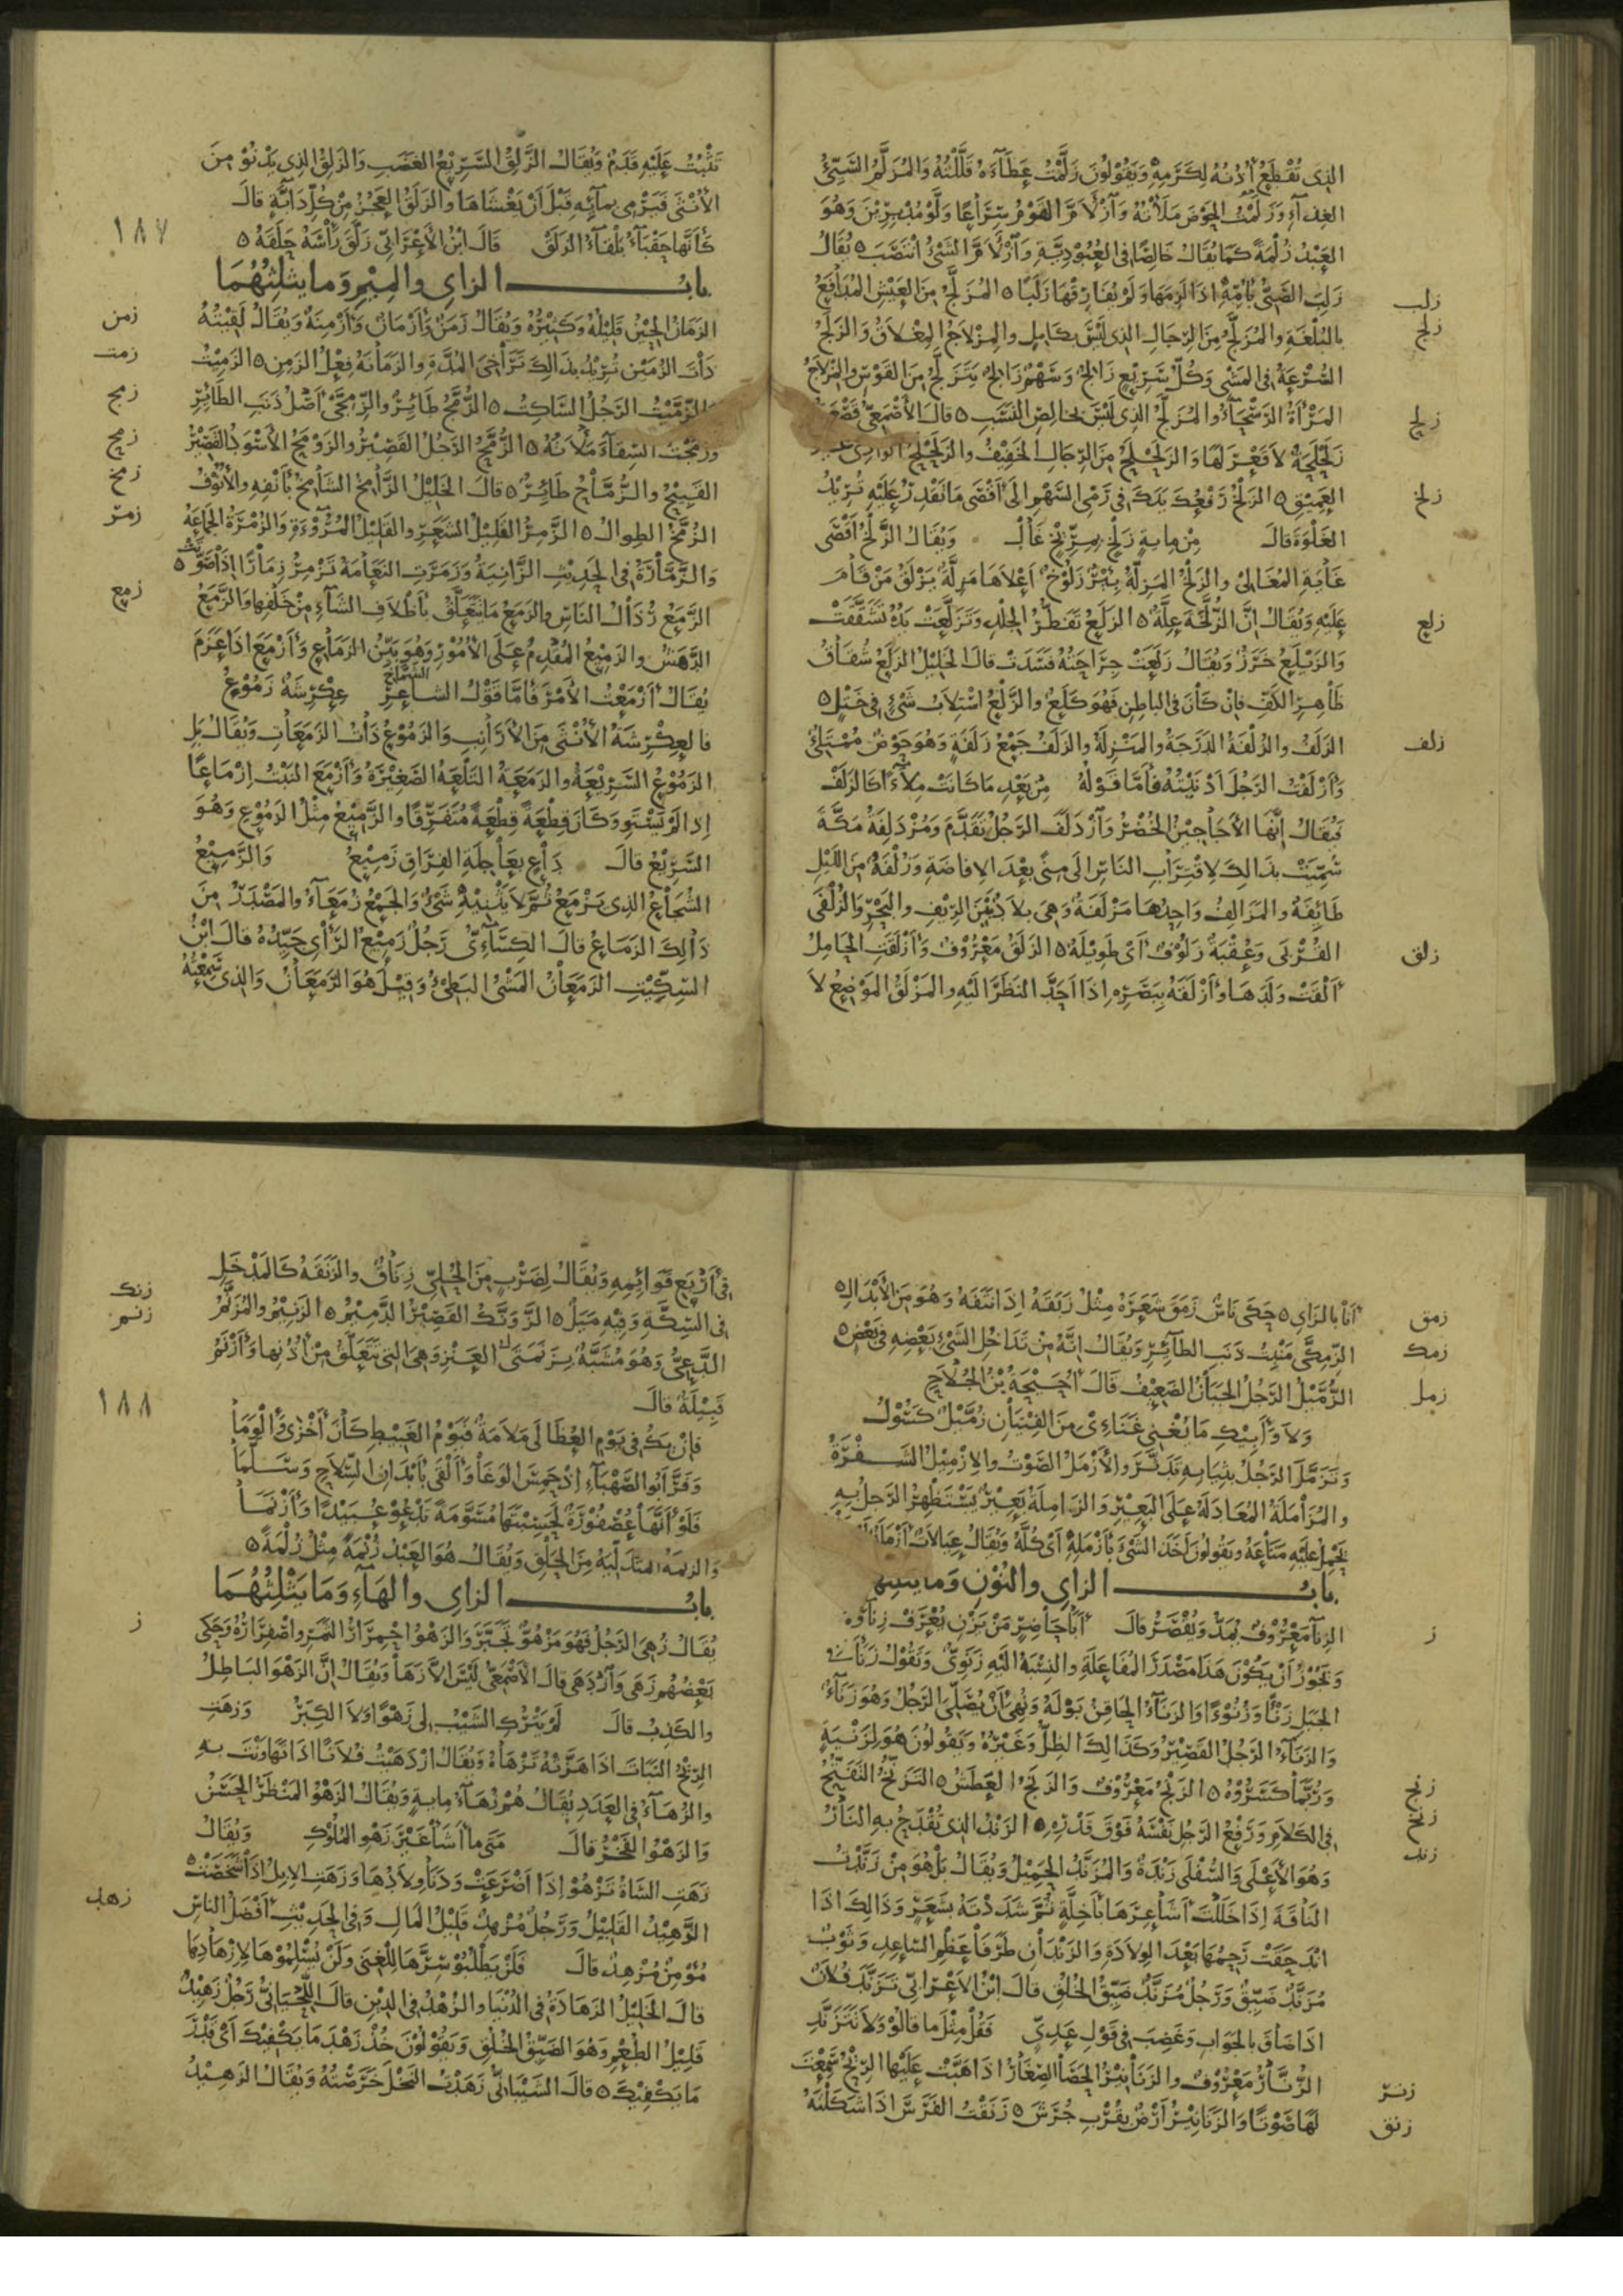 الذى تقطع أذنه لكرمه ويقولون زلمت عطآءه قللته والمزلم السيئ
الغذآء وزلمت الحوض ملأته وآزلأم القوم سراعا ولوا مدبرين وهو
العبد زلمة كما يقال خالصا فى العبودية وآزلأم الشىء انتصب ٥ يقال
زلب
زلب الصبى بأمه اذا لزمها ولم يفارقها زلبا ٥ المزلج من العيش المدافع
زلج
بالبلغة والمزلج من الرجال الذى ليس بكامل والمزلاج المغلاق والزلج
السرعة فى المشى وكل سريع زالج وسهم زالج يتزلج من القوس والمزلاج
زلح
المرأة الرسحآء والمزلج الذى ليس بخالص النسب ٥ قال الأصمعى قصعة
زلحلحة لا قعر لها والزلحلح من الرجال الخفيف والزلحلح الوادى غير
زلخ
العميق ٥ الزلخ رفعك يدك فى رمى السهم الى أقصى ما تقدر عليه تريد
الغلوة قال من ماية زلخ بمريخ غال ويقال الزلخ أقصى
غاية المغالى والزلخ المزلة بئر زلوخ أعلاها مزلة يزلق من قام
زلع
عليه ويقال ان الزلخة علة ٥ الزلع تفطر الجلد وتزلعت يده تشققت
والزيلع خرز ويقال زلعت جراحته فسدت قال الخليل الزلع شقاق
ظاهر الكف فان كان فى الباطن فهو كلع والزلع استلاب شىء فى ختل ٥
زلف
الزلف والزلفة الدرجة والمنزلة والزلف جمع زلفة وهو حوض ممتلئ
وأزلفت الرجل أدنيته فأما قوله من بعد ما كانت ملآءا كالزلف
فيقال إنها الأجاجين الخضر وآزدلف الرجل تقدم ومزدلفة مكة
سميت بذالك لاقتراب الناس الى منى بعد الافاضة وزلفة من الليل
طائفة والمزالف واحدها مزلفة وهى بلاد بين الريف والبحر والزلفى
زلق
القربى وعقبة زلوف أى طويلة ٥ الزلق معروف وأزلقت الحامل
ألقت ولدها وأزلقه ببصره اذا احد النظر اليه والمزلق الموضع لا
١٨٧
تثبت عليه قدم ويقال الزلق السريع الغضب والزلق الذى يدنو من
الأنثى فيرمى بمآئه قبل أن يغشاها والزلق العجز من كل دابة قال
كأنها حقبآء بلقآء الزلق قال ابن الأعرابى زلق رأسه حلقه ٥
باب الزاى والميم وما يثلثهما
زمن
الزمان الحين قليله وكثيره ويقال زمن وأزمان وأزمنة ويقال لقيته
زمت
ذات الزمين تريد بذالك تراخى المدة والزمانة فعل الزمن ٥ الزميت
زمج
والزميت الرجل الساكت ٥ الزمج طائر والزمجى أصل ذنب الطائر
زمح
وزمجت السقاء ملأته ٥ الزمح الرجل القصير والزومح الأسود القصير
زمخ
القبيح والزماح طائر ٥ قال الخليل الزامخ الشامخ بأنفه والأنوف
زمر
الزمخ الطوال ٥ الزمر القليل الشعر والقليل المروءة والزمرة الجماعة
والزمارة فى الحديث الزانية وزمرت النعامة تزمر زمارا اذا صوتت ٥
زمع
الزمع رذال الناس والزمع ما يتعلق بأظلاف الشآء من خلفها والزمع
الدهش والزميع المقدم على الأمور وهو بين الزماع وأزمع اذا عزم
يقال أزمعت الأمر فأما قول الشاعر الشماخ عكرشة زموع
فالعكرشة الأنثى من الأرانب والزموع ذات الزمعات ويقال بل
الزموع السريعة والزمعة التلعة الصغيرة وأزمع النبت إزماعا
إذا لم يستو وكان قطعة قطعة متفرقا والزميع مثل الزموع وهو
السريع قال داع بعاجلة الفراق زميع والزميع
الشجاع الذى يزمع ثم لا يثنيه شىء والجمع زمعآء والمصدر من
ذالك الزماع قال الكسآءى رجل زميع الرأى جيده قال ابن
السكيت الزمعان المشى البطىء وقيل هو الزمعان والذى سمعته
زمق
أنا بالزاى ٥ حكى ناس زمق شعره مثل زبقه اذا نتفه وهو من الأبدال ٥
زمك
الزمكى منبت ذنب الطآئر ويقال انه من تداخل الشىء بعضه فى بعض ٥
زمل
الزميل الرجل الجبان الضعيف قال أحيحة بن الجلاح
ولا وأبيك ما يغنى غنآءى من الفتيان زميل كسول
وتزمل الرجل بثيابه تدثر والأزمل الصوت والازميل الشفرة
والمزاملة المعادلة على البعير والزاملة بعير يستظهر الرجل به
يحمل عليه متاعه ويقولون أخذ الشىء بأزمله أى كله ويقال عيالات أزملة
باب الزاى والنون وما يثلثهما
ز
الزنآ معروف يمد ويقصر قال أبا حاضر من يزن يعرف زنآؤه
ويجوز أن يكون هذا مصدر المفاعلة والنسبة اليه زنوى وتقول زنأت
الجبل زنأ وزنوءا والزنآء الحاقن بوله ونهى أن يصلى الرجل وهو زنآء
والزنآء الرجل القصير وكذالك الظل وغيره ويقولون هو لزنية
زنج
وربما كسروه ٥ الزنج معروف والزنج العطش ٥ التزنح التفتح
زنح
فى الكلام ورفع الرجل نفسه فوق قدره ٥ الزند الذى تقدح به النار
زند
وهو الأعلى والسفلى زندة والمزند الحميل ويقال بل هو من زندت
الناقة اذا خللت أشاعرها بأخلة ثم شددته بشعر وذالك اذا
اندحقت رحمها بعد الولادة والزندان طرفا عظم الساعد وثوب
مزند ضيق ورجل مزند ضيق الخلق قال ابن الأعرابى تزند فلان
اذا ضاق بالجواب وغضب فى قول عدى فقل مثل ما قالوا ولا تتزند
زنر
الزنار معروف والزنانير الحصا الصغار اذا هبت عليها الريح سمعت
زنق
لها صوتا والزنانير أرض بقرب جرش ٥ زنقت الفرس اذا شكلته
فى أربع قوائمه ويقال لضرب من الحلى زناق والزنقة كالمدخل
زنك
فى السكة وفيه ميل ٥ الزونك القصير الدميم ٥ الزنيم والمزنم
زنم
الدعى وهو مشبه بزنمتى العنز وهى التى تتعلق من أذنها وأزنم
١٨٨
قبيلة قال
فإن يك فى يوم العظالى ملامة فيوم الغبيط كان أخزى وألوما
وفر أبو الصهبآء إذ حمس الوغا وألقى بأبدان السلاح وسلما
فلو أنها عصفورة لحسبتها مسومة تدعو عبيدا وأزنما
والزنمة المتدلية من الحلق ويقال هو العبد زنمة مثل زلمة ٥
باب الزاى والهآء وما يثلثهما
ز
يقال زهى الرجل فهو مزهو تجبر والزهو احمرار الثمر واصفراره وحكى
بعضهم زهى وآزدهى قال الأصمعى ليس الا زها ويقال إن الزهو الباطل
والكذب قال لم يترك الشيب لى زهوا ولا الكبر وزهت
الريح النبات اذا هزته تزهاه ويقال ازدهيت فلانا اذا تهاونت به
والزهآء فى العدد يقال هم زهآء ماية ويقال الزهو المنظر الحسن
والزهو الفخر قال متى ما أشأ غير زهو الملوك ويقال
زهت الشاة تزهو اذا أضرعت ودنا ولادها وزهت الابل اذا شخصت ٥
زهد
الزهيد القليل ورجل مزهد قليل المال وفى الحديث أفضل الناس
مؤمن مزهد قال فلن يطلبوا سرها للغنى ولن يسلموها لإزهادها
قال الخليل الزهادة فى الدنيا والزهد فى الدين قال اللحيانى رجل زهيد
قليل الطعم وهو الضيق الخلق ويقولون خذ زهد ما يكفيك أى قدر
ما يكفيك ٥ قال الشيبانى زهدت النخل خرصته ويقال الزهيد